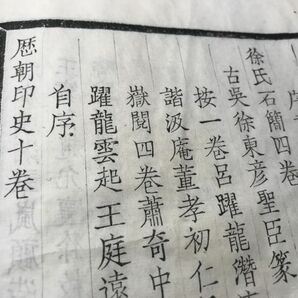 徐氏石簡四卷
古吳徐東彥聖臣篆
按一卷呂躍龍潛
諧汲庵董孝初仁
嶽閱四卷蕭奇中
躍龍雲起王庭遠
自序
歴朝印史十卷